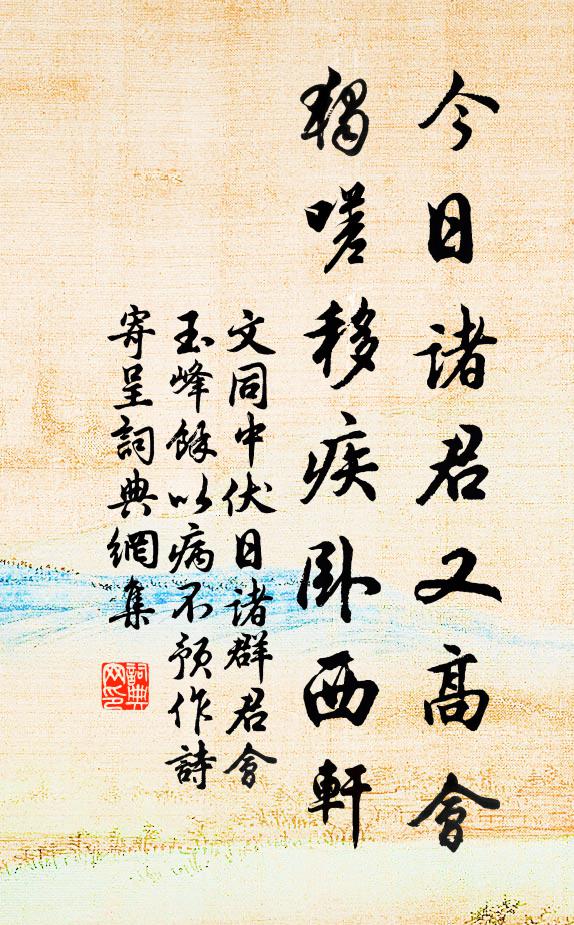 今日諸君又高會
獨嗟移疾卧西軒
文同中伏日諸群君會
玉峰餘以病不預作詩
寄呈詞典網集
詞典
网印